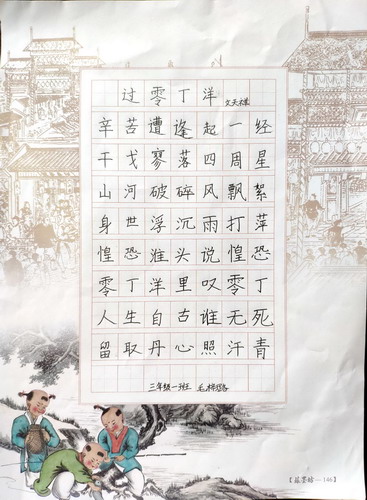 过零丁洋 文天祥
辛苦遭逢起一经
干戈寥落四周星
山河破碎风飘絮
身世浮沉雨打萍
惶恐滩头说惶恐
零丁洋里叹零丁
人生自古谁无死
留取丹心照汗青
三年级一班 毛
墨坊—146】